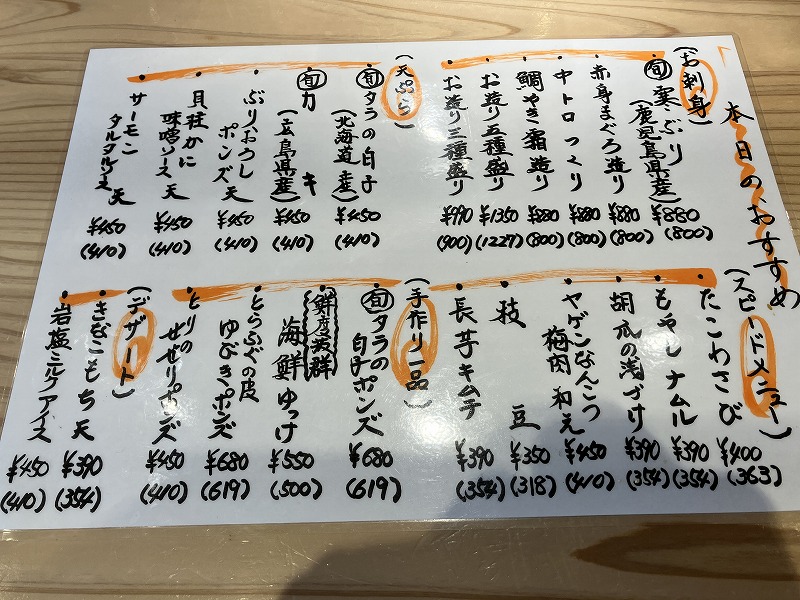 本日のおすすめ
(お刺身)
旬 寒ぶり
(鹿児島県産)
¥880
(800)
赤身まぐろ造り
¥880
(800)
中トロつくり
¥880
(800)
鯛やき霜造り
¥880
(800)
お造り五種盛り
¥1350
(1227)
お造り三種盛り
¥990
(900)
(天ぷら)
旬 タラの白子
(北海道産)
¥450
(410)
旬 カキ
(広島県産)
¥450
(410)
ぶりおろし
ポンズ天
¥450
(410)
貝柱かに
味噌ソース天
¥450
(410)
サーモン
タルタルソース天
¥450
(410)
(スピードメニュー)
たこわさび
¥400
(363)
もやしナムル
¥390
(354)
胡瓜の浅づけ
¥390
(354)
ヤゲンなんこつ
梅肉和え
¥450
(410)
枝豆
¥350
(318)
長芋キムチ
¥390
(354)
(手作り一品)
旬 タラの
白子ポンズ
¥680
(619)
鮮度抜群
海鮮ゆっけ
¥550
(500)
とらふぐの皮
ゆびきポンズ
¥680
(619)
とりの
せせりポンズ
¥450
(410)
(デザート)
きなこもち天
¥390
(354)
岩塩ミルクアイス
¥450
(410)